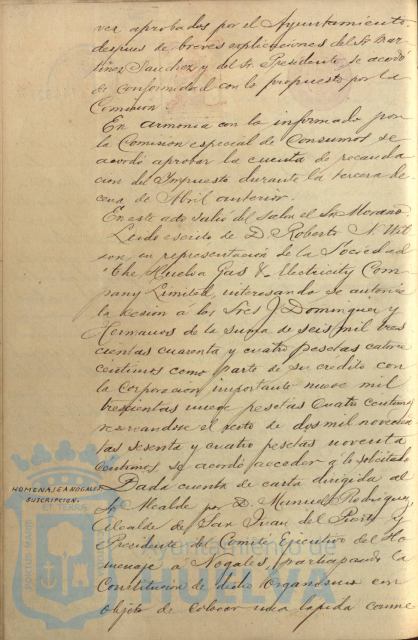 ver aprobados por el Ayuntamiento
despues de breves esplicaciones del Sr. Mar-
tinez Sanchez y del Sr. Presidente se acordó
de conformidad con lo propuesto por la
Comision.
En armonia con lo informado por
la Comision especial de Consumos se
acordó aprobar la cuenta de recauda
cion del Impuesto durante la tercera de-
cena de Abril anterior.
En este acto salio del Salon el Sr. Morano
Leido escrito de D. Roberto N. Wil
son, en representacion de la Sociedad
"The Huelva Gas & Electricity Com
pany Limited, interesando se autorice
la cesion á los Sres J. Dominguez y
Hermanos de la suma de seis mil tres
cientas cuarenta y cuatro pesetas catorce
centimos como parte de su credito con
la Corporacion importante nueve mil
trescientas nueve pesetas cuatro centimos
reservandose el resto de dos mil novecien
tas sesenta y cuatro pesetas noventa
centimos, se acordó acceder á lo solicitado
HOMENAJE A NOGALES
SUSCRIPCION.
Dada cuenta de carta dirigida al
Sr. Alcalde por D. Manuel Rodriguez,
Alcalde de San Juan del Puerto y
Presidente del Comite Ejecutivo del Ho
menaje á Nogales, participando la
Constitucion de dicho Organismo con
objeto de colocar una lapida conme
PORTUS MARIS
ET TERRÆ
Ayuntamiento de
HUELVA